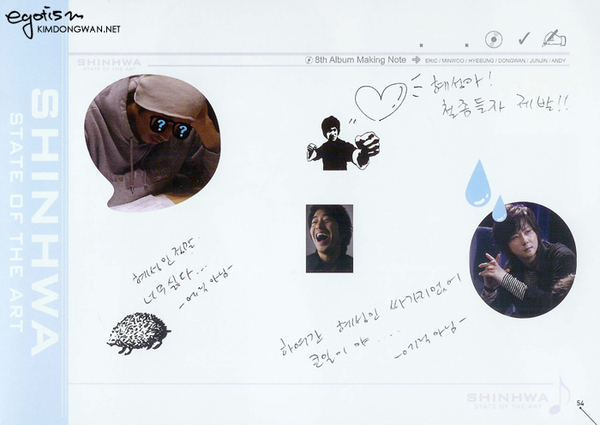 egotism
KIMDONGWAN.NET
SHINHWA
STATE OF THE ART
8th Album Making Note
ERIC / MINWOO / HYESUNG / DONGWAN / JUNJIN / ANDY
SHINHWA
STATE OF THE ART
혜성아!
철좀들자 제발!!
? ?
혜성인 정말
너무싫다...
-에릭 아님-
하여간 혜성인 싸가지없어
큰일이야...
-에릭 아님-
SHINHWA
STATE OF THE ART
54